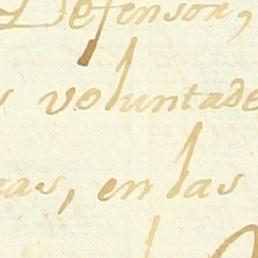 Defensor,
voluntade
as, en las